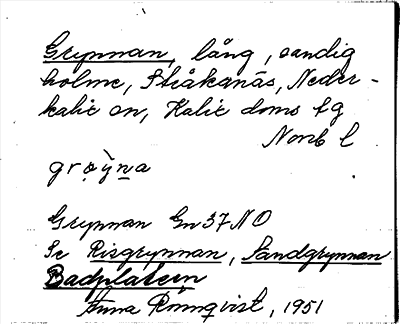 Grynnan, lång, sandig
holme, Stråkanäs, Neder-
kalix sn, Kalix doms fg
Norrb l
grø̣̀yṉa
Grynnan Gn 37 NO
Se Risgrynnan, Sandgrynnan
Badplatsen
Anna Rönnqvist, 1951